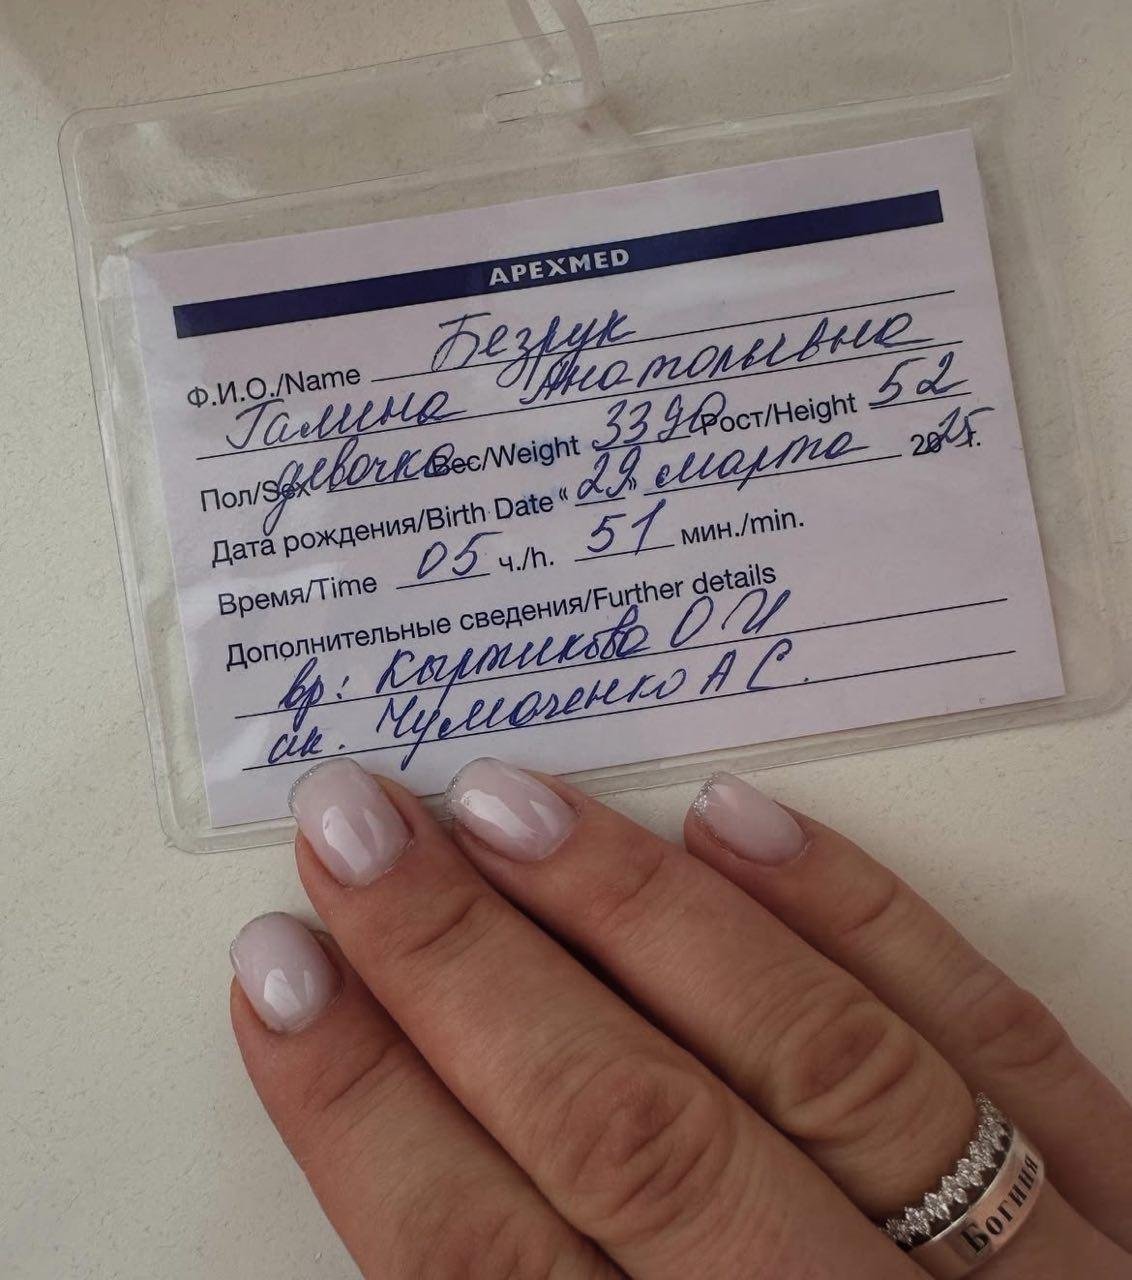 APEXMED
Ф.И.О./Name Безрук
Галина Анатольевна
Пол/Sex девочка Вес/Weight 3390 Рост/Height 52
Дата рождения/Birth Date “29” марта 2025г.
Время/Time 05 ч./h. 51 мин./min.
Дополнительные сведения/Further details
вр: Кыртикова О И
ак. Чумаченко А С.
Богиня